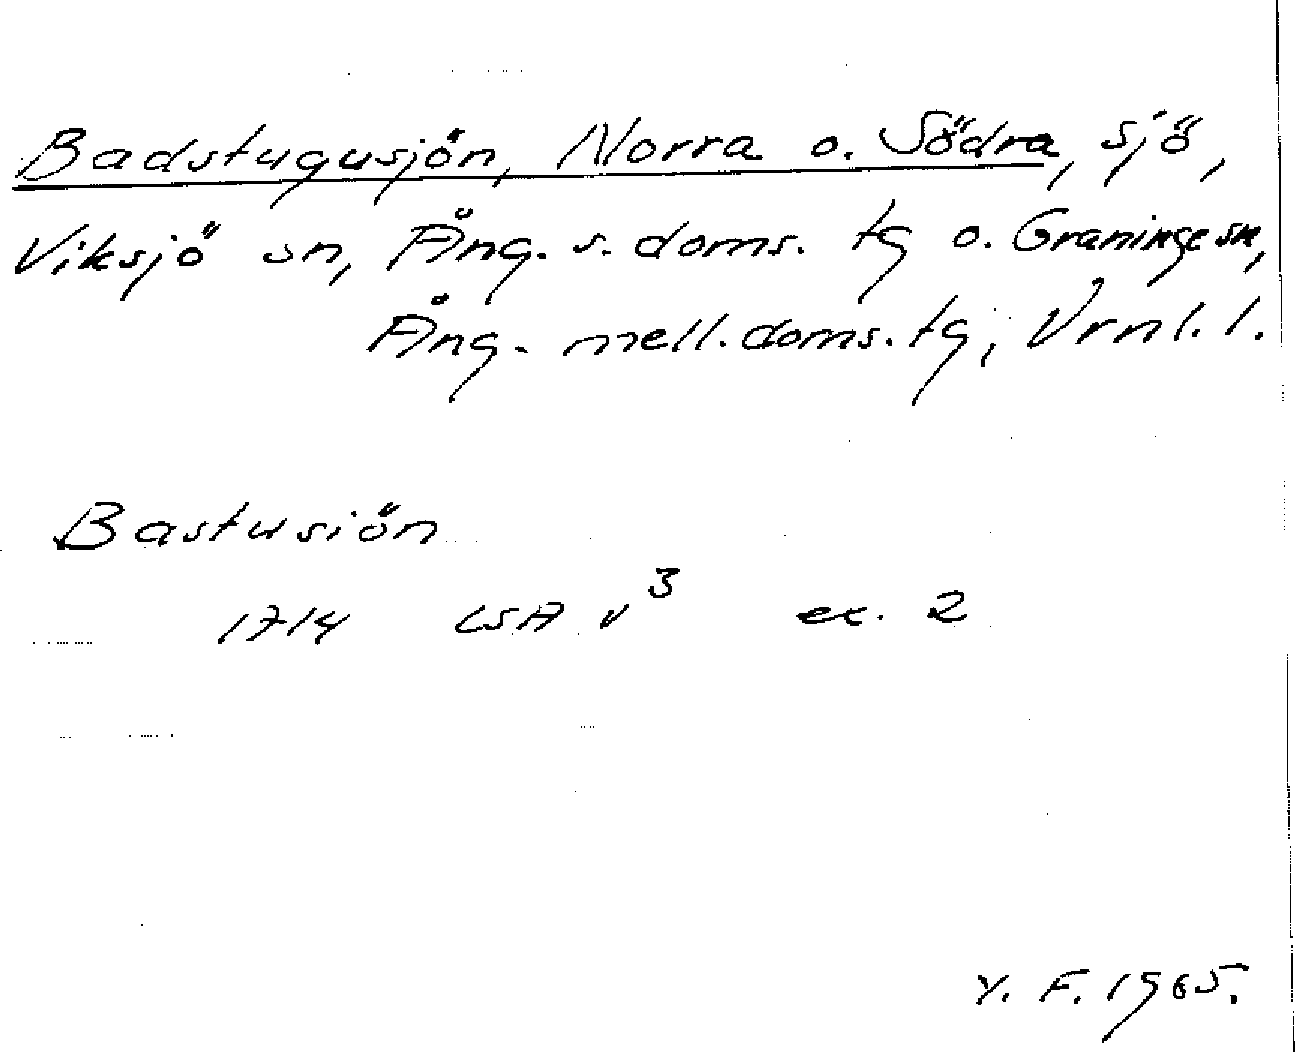 Badstugusjön, Norra o. Södra, sjö,
Viksjö sn, Ång. s. doms. tg o. Graninge sn,
Ång. mell. doms. tg, Vrnl. l.
Bastusiön
1714 LSA v³ ex. 2
Y. F. 1965.